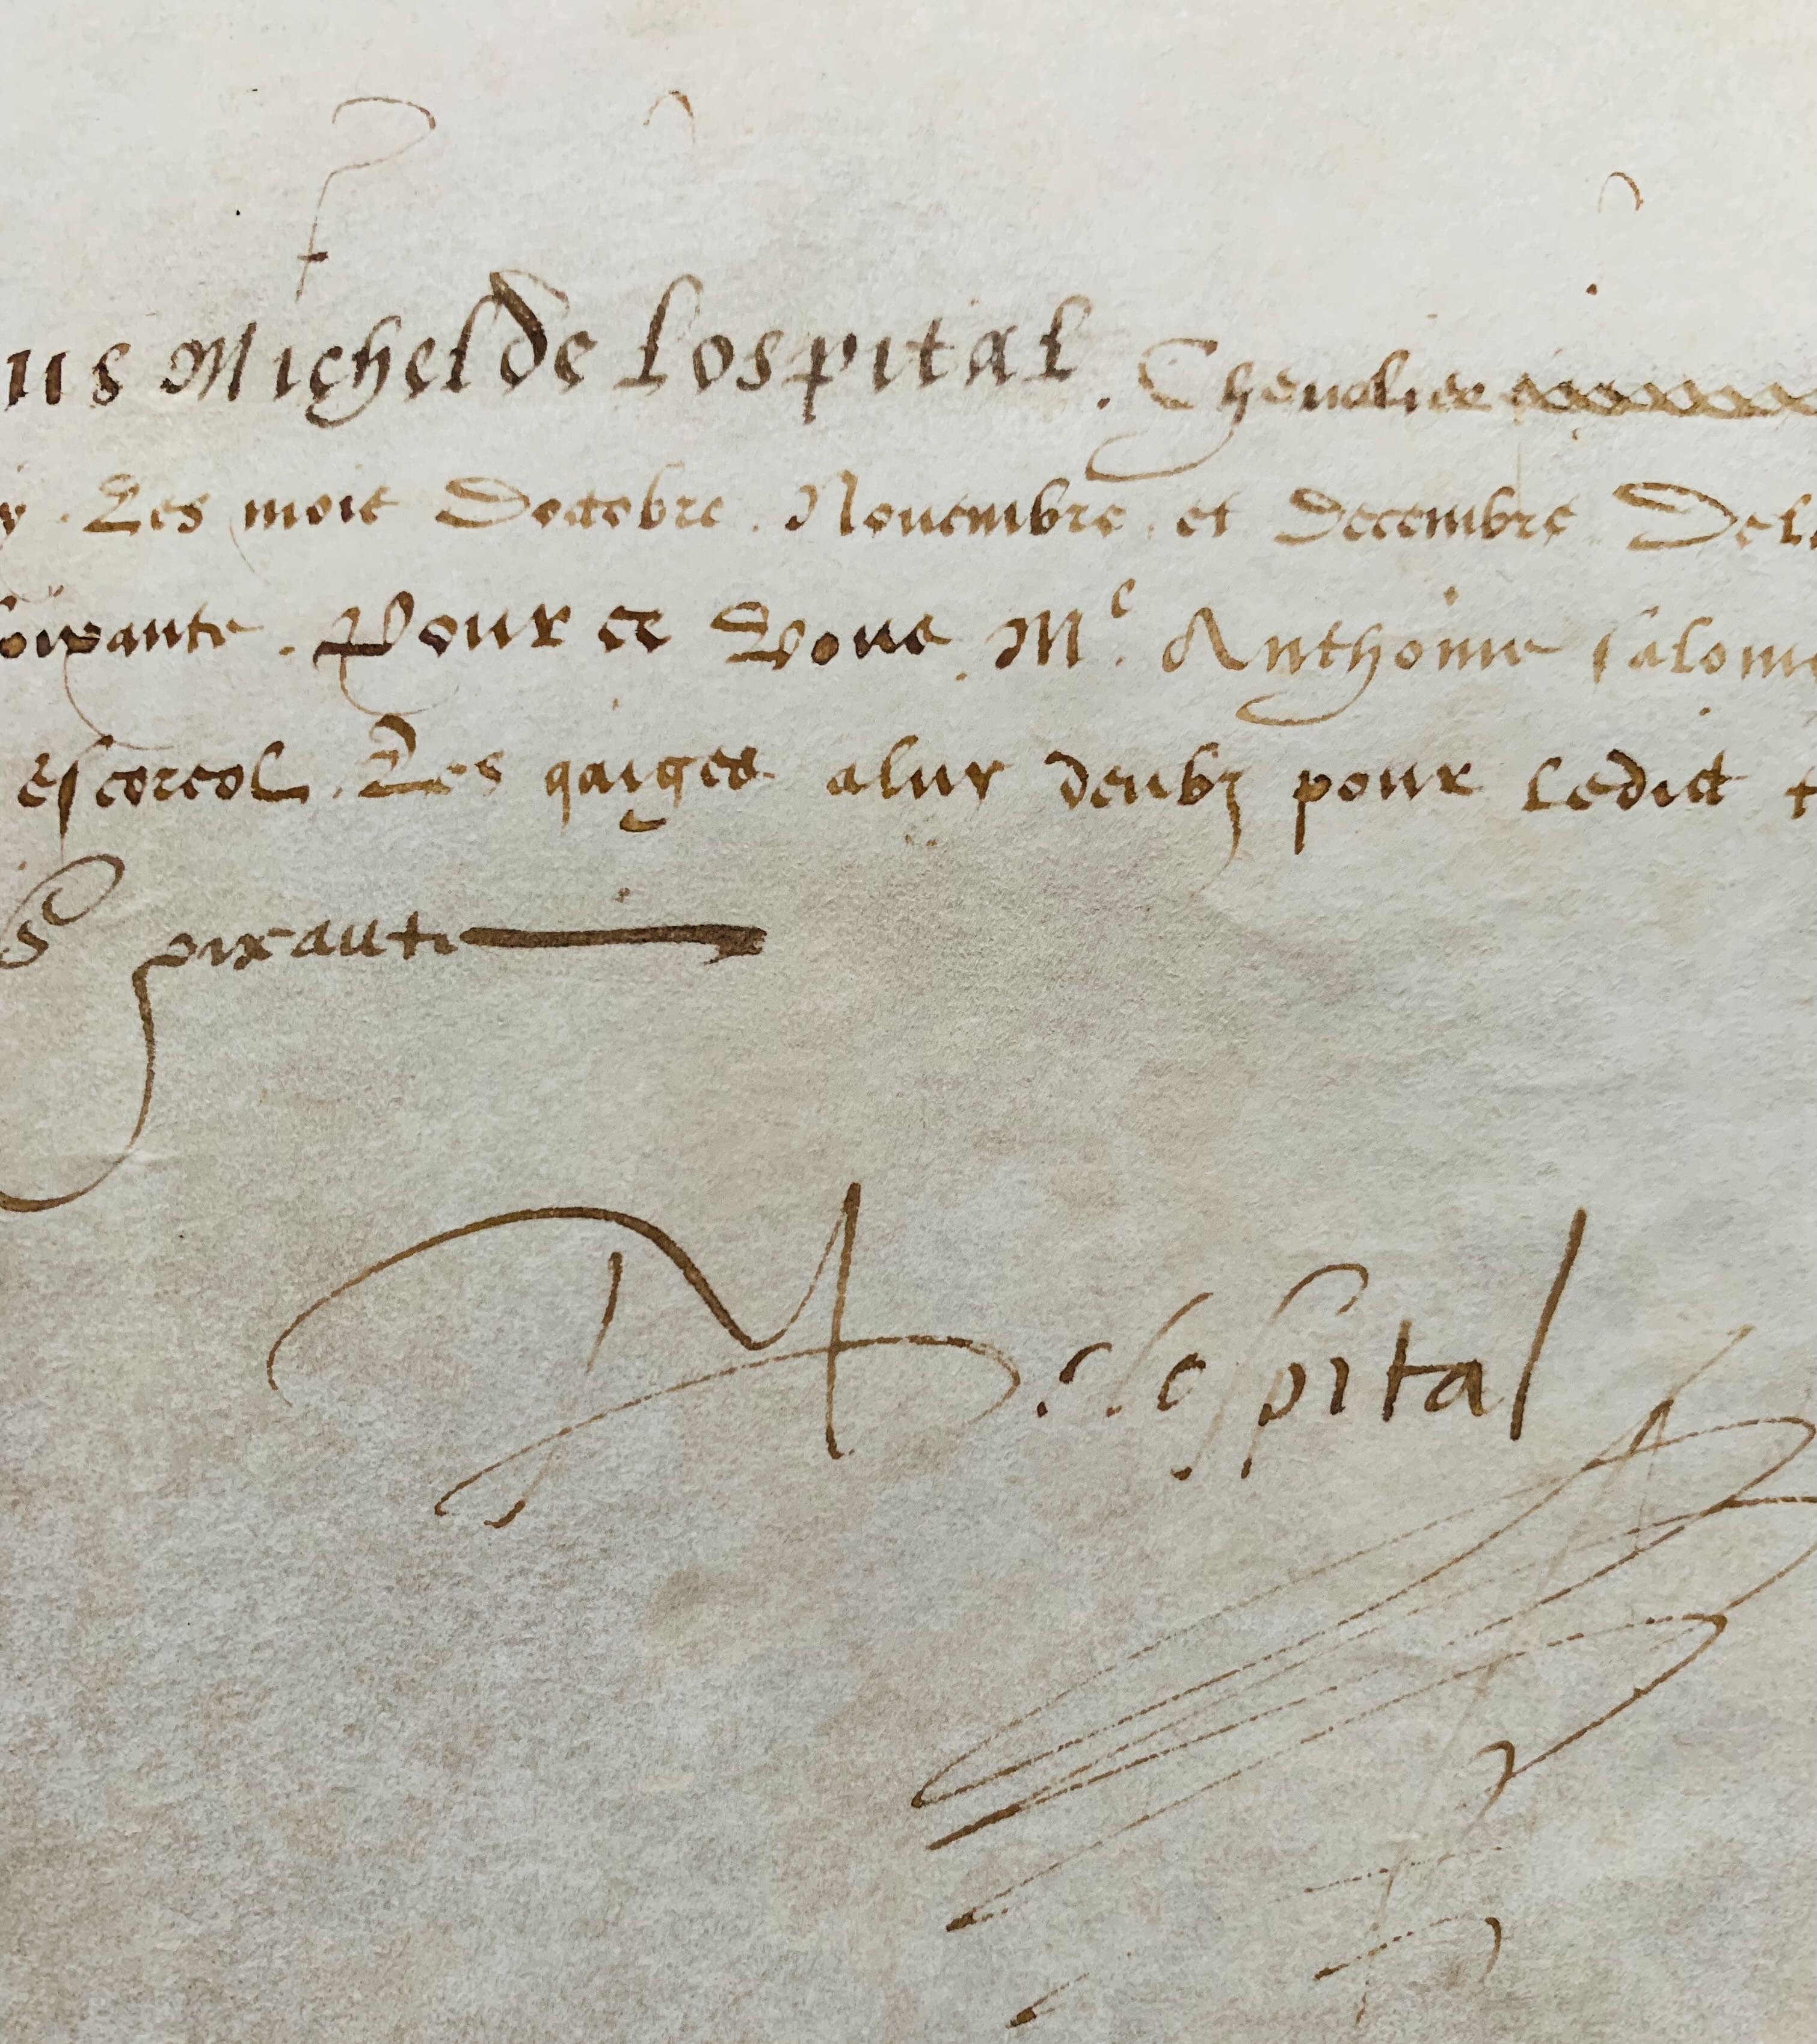 us Michel de Lospital . Chevalier
y . Les mois Doctobre . Novembre . et Decembre . Del
soixante . Pour ce Vous . Me . Anthoine Salom
escorcol . Les gaiges a luy deubz pour ledict t
soixante
M . de lospital